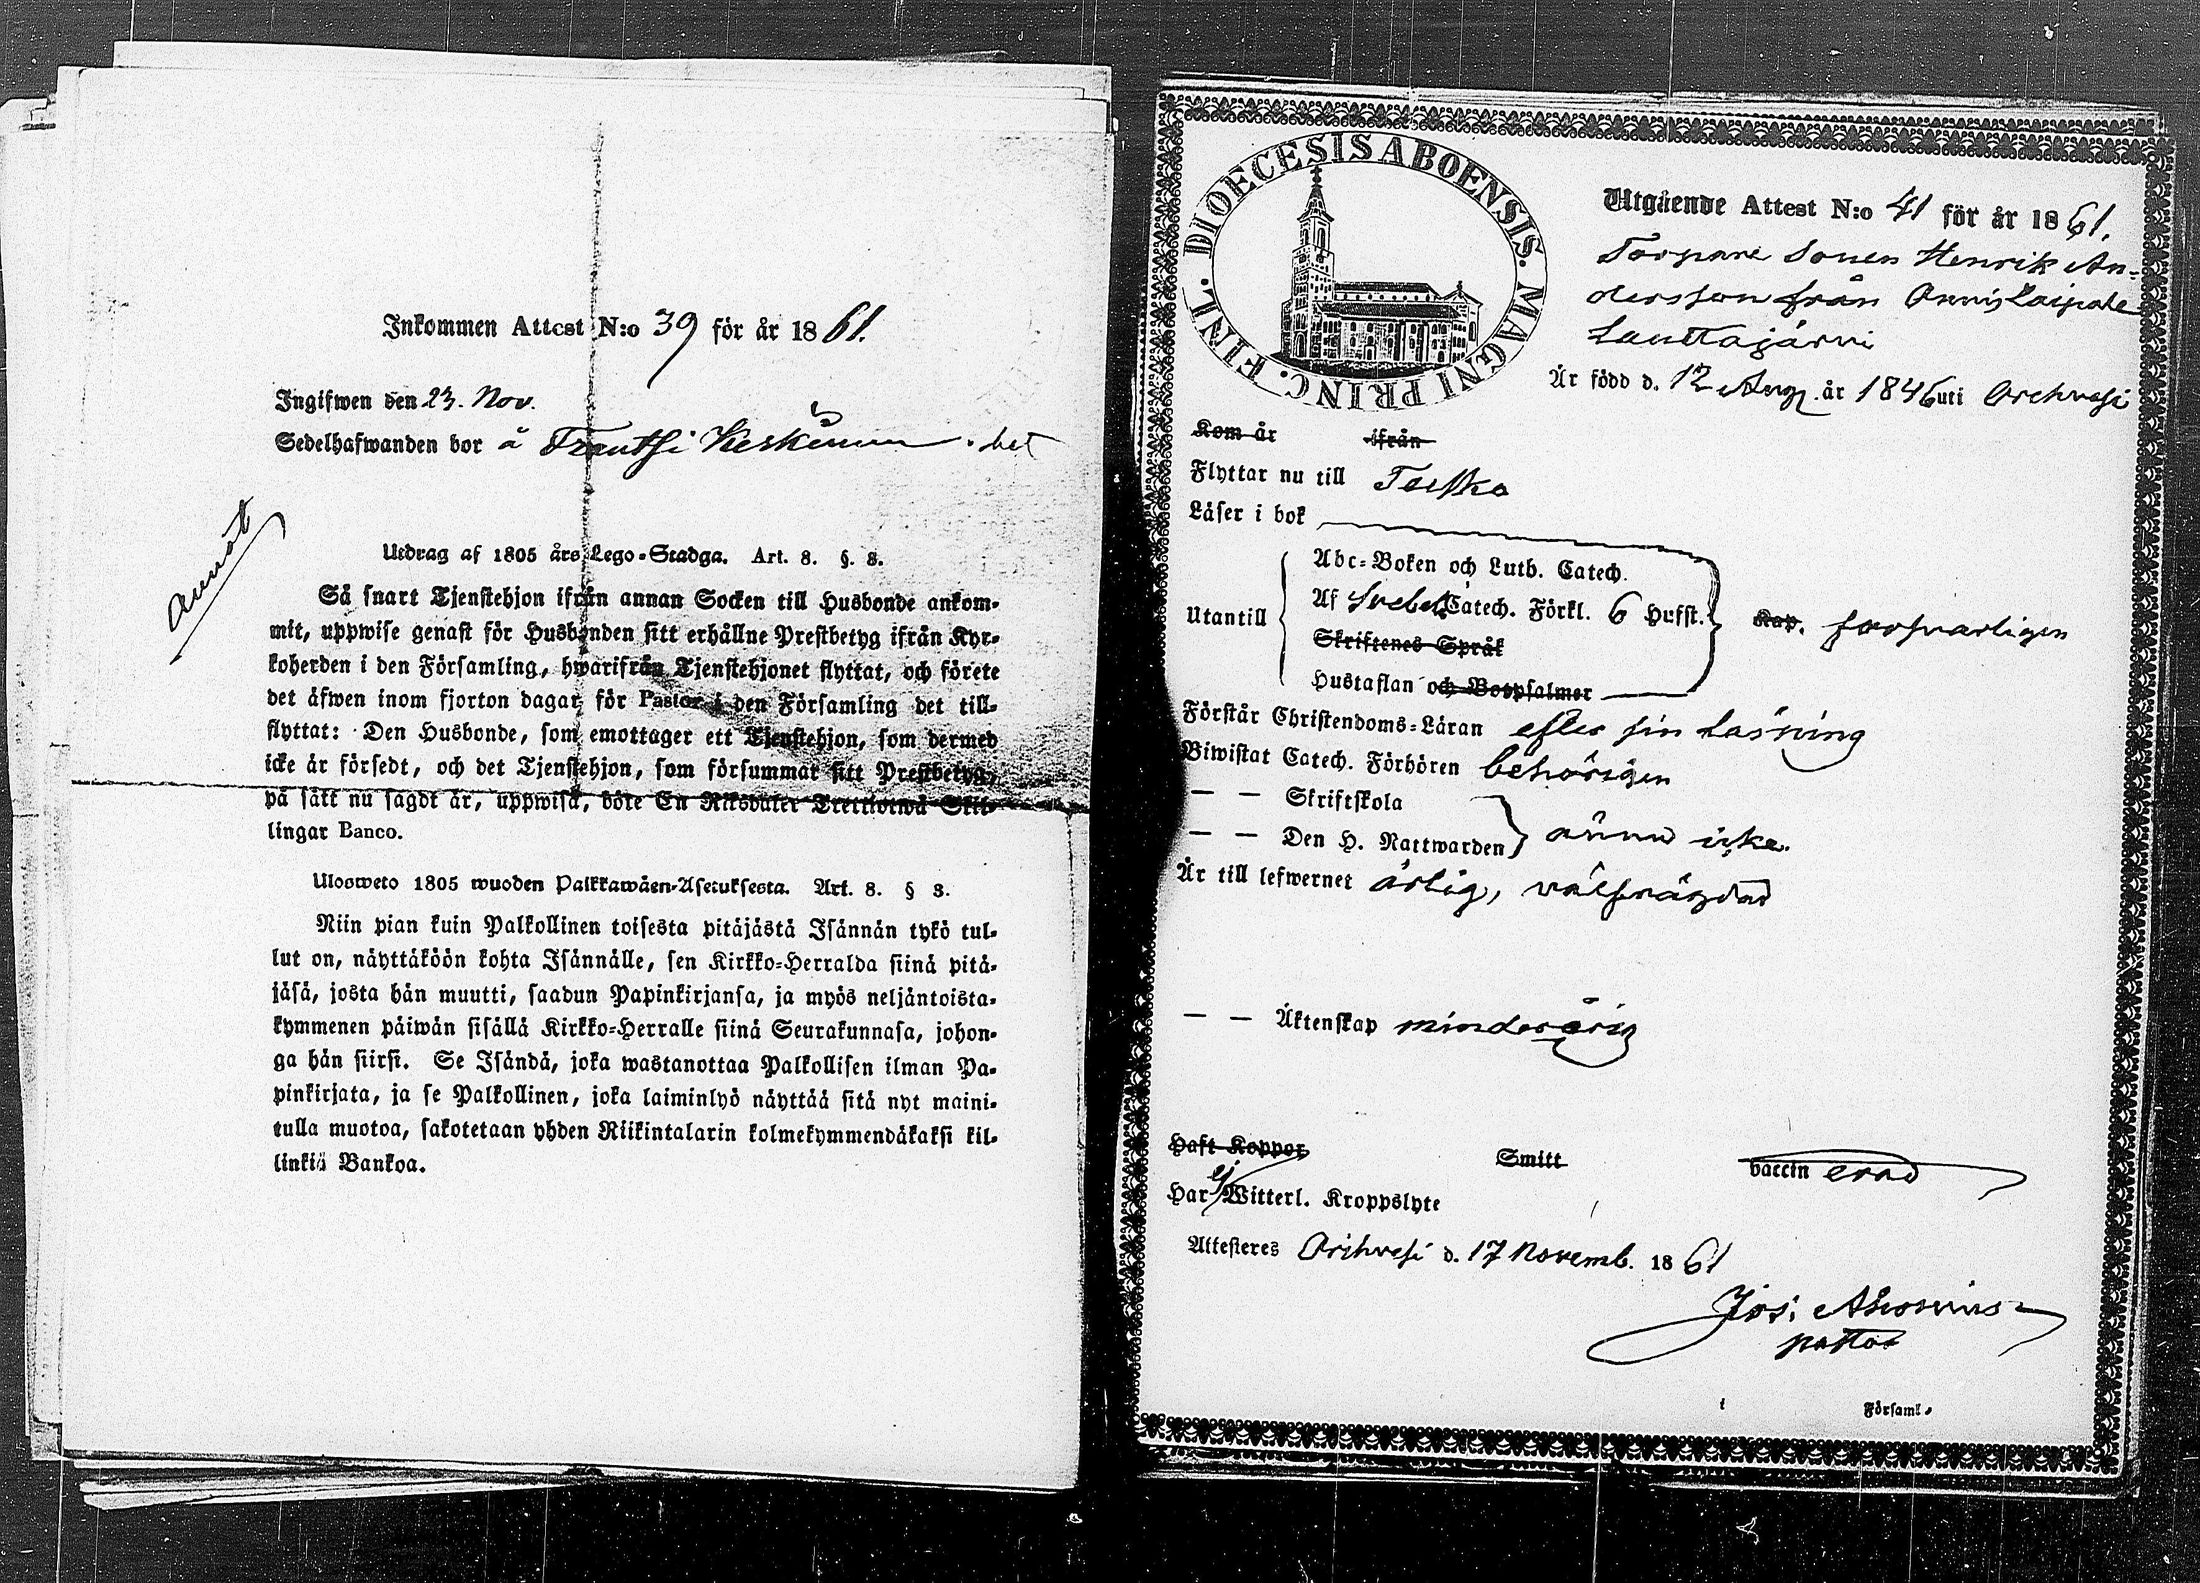 Inkommen Attest N:o 39 för år 1861.
Ingifwen den 23. Nov.
Sedelhafwanden bor å Keskinen
annöt
Utdrag af 1805 års Lego-Stadga. Art. 8. §. 8.
Så snart Tjenstehjon ifrån annan Socken till Husbonde ankom-
mit, uppwise genast för Husbonden sitt erhållne Prestbetyg ifrån Kyr-
koherden i den Församling, hwarifrån Tjenstehjonet flyttat, och förete
det äfwen inom fjorton dagar för Pastor i den Församling det till-
flyttat: Den Husbonde, som emottager ett Tjenstehjon, som dermed
icke är försedt, och det Tjenstehjon, som försummat sitt Prestbetyg,
på sätt nu sagdt är, uppwisa, böte En Riksdaler Trettiotwå Skil-
lingar Banco.
Ulosweto 1805 wuoden Palkkawäen-Asetuksesta. Art. 8. § 8.
Niin pian kuin Palkollinen toisesta pitäjästä Isännän tykö tul-
lut on, näyttäköön kohta Isännälle, sen Kirkko-Herralda siinä pitä-
jäsä, josta hän muutti, saadun Papinkirjansa, ja myös neljäntoista-
kymmenen päiwän sisällä Kirkko-Herralle siinä Seurakunnasa, johon-
ga hän siirsi. Se Isändä, joka wastanottaa Palkollisen ilman Pa-
pinkirjata, ja se Palkollinen, joka laiminlyö näyttää sitä nyt maini-
tulla muotoa, sakotetaan yhden Riikintalarin kolmekymmendäkaksi kil-
linkiä Bankoa.
DIOECESIS ABOENSIS. MAGNI PRINC. FINL.
Utgående Attest N:o 41 för år 1861.
Torpare Sonen Henrik An-
dersson från Onnistaipale
Lauttajärvi
Är född d. 12 Aug. år 1846 uti Orihvesi
Kom år ifrån
Flyttar nu till Teisko
Läser i bok
Abc-Boken och Luth. Catech.
Utantill Af Svebel. Catech. Förkl. 6 Hufst. Kap. försvarligen
Skriftenes Språk
Hustaflan och Botpsalmer
Förstår Christendoms-Läran efter sin Läsning
Biwistat Catech. Förhören behörigen
— — Skriftskola
— — Den H. Nattwarden ännu icke.
Är till lefwernet ärlig, välfrägdad
— — Äktenskap minderårig
Haft Koppor Smitt vaccin erad
Har ej Witterl. Kroppslyte
Attesteres Orihvesi d. 17 Novemb. 1861
Jos:
pastor
i Församl.